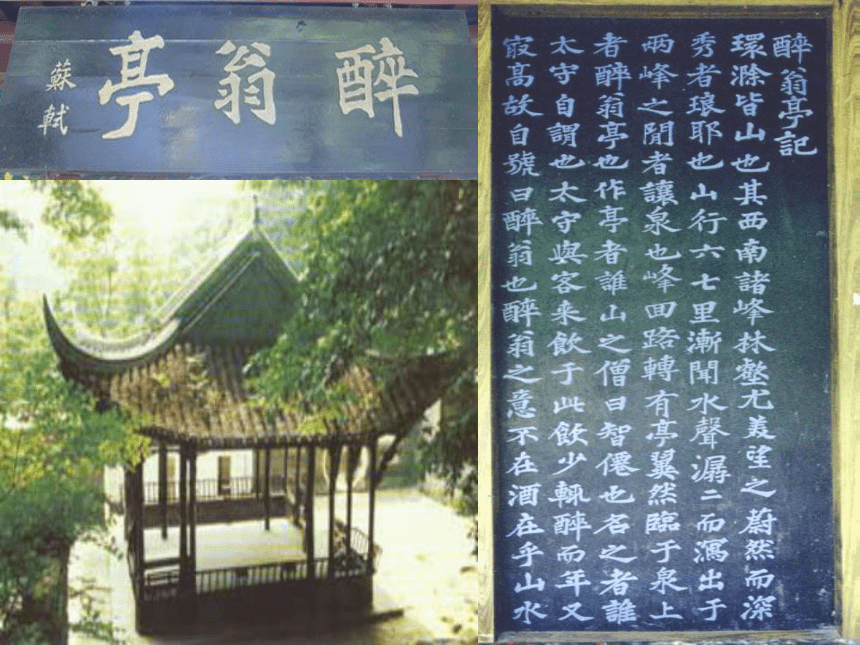 醉翁亭
蘇軾
醉翁亭記
環滁皆山也其西南諸峰林壑尤美望之蔚然而深
秀者琅耶也山行六七里漸聞水聲潺〻而瀉出于
兩峰之閒者讓泉也峰回路轉有亭翼然臨于泉上
者醉翁亭也作亭者誰山之僧曰智僊也名之者誰
太守自謂也太守與客來飲于此飲少輒醉而年又
㝡高故自號曰醉翁也醉翁之意不在酒在乎山水